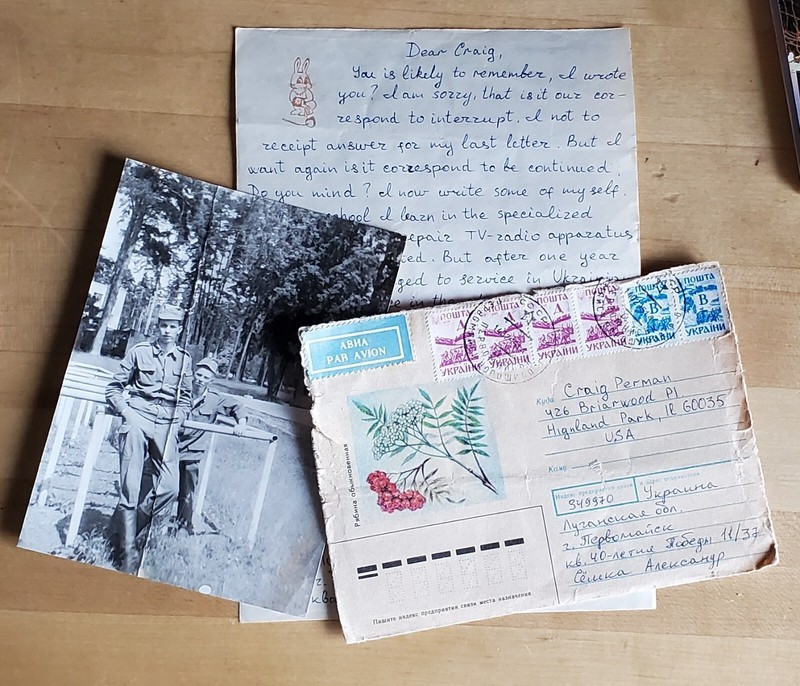 Dear Craig,
You is likely to remember, I wrote
you? I am sorry, that is it our cor-
respond to interrupt. I not to
receipt answer for my last letter. But I
want again is it correspond to be continued.
Do you mind? I now write some of my self.
school I learn in the specialized
repair TV-radio apparatus
ted. But after one year
ged to service in Ukrainia
in the
АВИА
PAR AVION
ПОШТА
Д
УКРАЇНИ
ПОШТА
Д
УКРАЇНИ
ПОШТА
Д
УКРАЇНИ
ПОШТА
УКРАЇНИ
ПОШТА
В
УКРАЇНИ
ПОШТА
В
УКРАЇНИ
Рябина обыкновенная
Куда Craig Perman
426 Briarwood Pl.
Highland Park, Il 60035
USA
Кому
Индекс предприятия связи и адрес отправителя
349970 Украина
Луганская обл.
г. Первомайск
кв. 40-летия Победы 11/37
Сёмка Александр
Пишите индекс предприятия связи места назначения
г.
ква